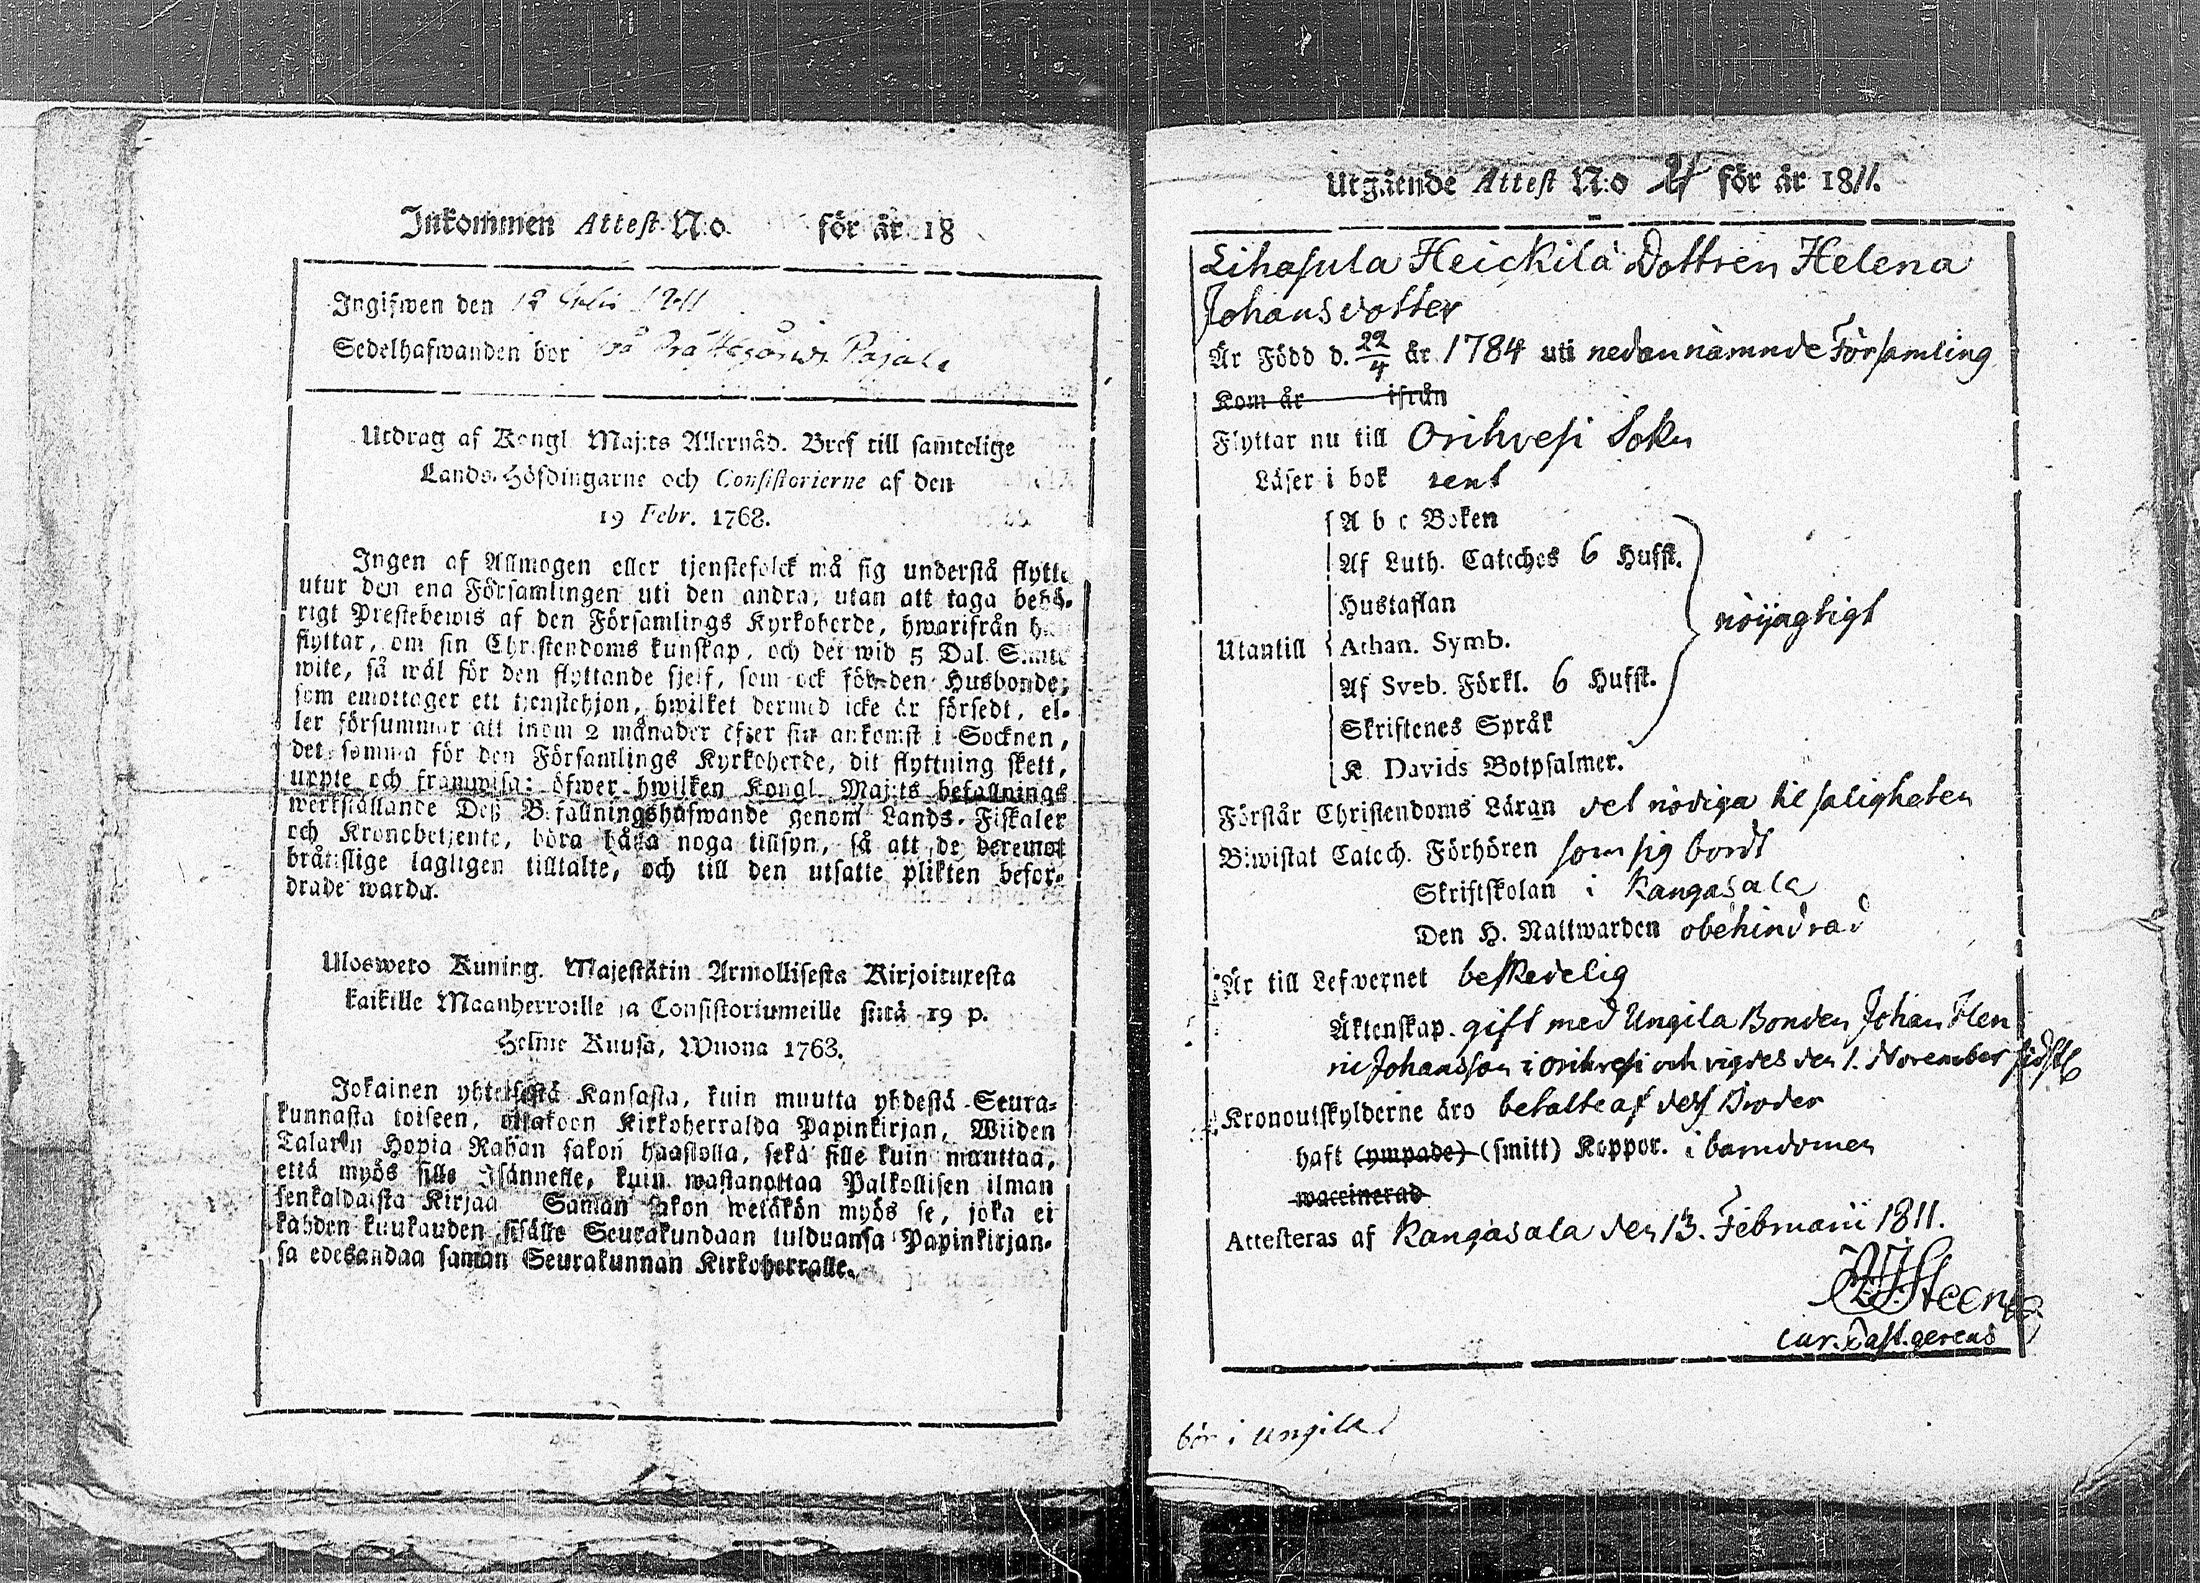 Inkommen Attest N:o för år 18
Ingifwen den 12 Julii 1811
Sedelhafwanden bor på Prästgårds Pajala
Utdrag af Kongl. Maj:ts Allernåd. Bref till samtelige
Lands-Höfdingarne och Consistorierne af den
19 Febr. 1768.
Ingen af Allmogen eller tjenstefolck må sig understå flytta
utur den ena Församlingen uti den andra, utan att taga behö-
rigt Prestebewis af den Församlings Kyrkoherde, hwarifrån han
flyttar, om sin Christendoms kunskap, och det wid 5 Dal. S:mts
wite, så wäl för den flyttande sjelf, som ock för den Husbonde,
som emottager ett tjenstehjon, hwilket dermed icke är försedt, el-
ler försummar att inom 2 månader efter sin ankomst i Socknen,
det samma för den Församlings Kyrkoherde, dit flyttning skett,
uppte och framwisa: öfwer hwilken Kongl. Maj:ts befallnings
werkställande Deß Befallningshafwande genom Lands-Fiskaler
och Kronobetjente, böra hålla noga tillsyn, så att de deremot
bråtislige lagligen tilltalte, och till den utsatte plikten befor-
drade warda.
Uloswero Kuning. Majestätin Armollisesta Kirjoituresta
kaikille Maanherroille ja Consistoriumeille siitä 19 p.
Helme Kuusa, Wuona 1763.
Jokainen yhteisestä Kansasta, kuin muutta yhdestä Seura-
kunnasta toiseen, ottakoon Kirkoherralda Papinkirjan, Wiiden
Talarin Hopia Rahan sakon haastolla, sekä sille kuin muuttaa,
että myös sille Isännelle, kuin wastanottaa Palkollisen ilman
senkaldaista Kirjaa Saman sakon wetäkön myös se, joka ei
kahden kuukauden sisälle Seurakundaan tulduansa Papinkirjan-
sa edesandaa saman Seurakunnan Kirkoherralle.
Utgående Attest N:o 21 för år 1811.
Lihasula Heickilä Dottren Helena
Johansdotter
Är Född d. 22/4 år 1784 uti nedannämnde Församling
Kom år ifrån
Flyttar nu till Orihvesi Sokn
Läser i bok rent
A b c Boken
Af Luth. Cateches 6 Hufst.
Hustaflan
nöijagtigt
Utantill Athan. Symb.
Af Sveb. Förkl. 6 Hufst.
Skriftenes Språk
K. Davids Botpsalmer.
Förstår Christendoms Läran det nödiga til saligheten
Biwistat Catech. Förhören som sig bordt
Skriftskolan i Kangasala
Den H. Nattwarden obehindrad
Är till Lefwernet beskedelig
Äktenskap. gift med Ungila Bonden Johan Hen
ric Johansson i Orihvesi och vigdes den 1. November sidstl
Kronoutskylderne äro betalte af dess Broder
haft (ympade) (smitt) Koppor. i barndomen
waccinerad
Attesteras af Kangasala den 13. Februarii 1811.
Steen
cur. Past. gerens
bor i Ungila